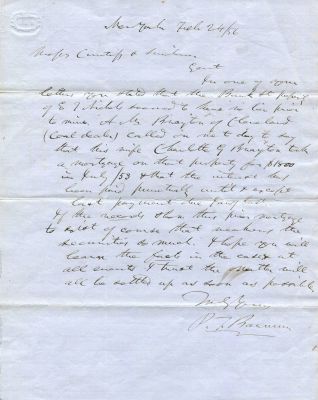 New York Feb 24/56
Messrs
Gent
In one of your
letters you stated that the Bank St property
of E T Nichols seemed to have no lien prior
to mine. A Mr Brayton of Cleveland
(Coal dealer) called on me to day to say
that his wife Charlotte O Brayton took
a mortgage on that property for $1500
in July /53 & that the interest has
been paid punctually until & except
last payment due
If the records show this prior mortgage
to exist of course that weakens the
securities so much. I hope you will
learn the facts in the case & at
all events I trust the matter will
all be settled up as soon as possible
Truly Yours
P. T. Barnum